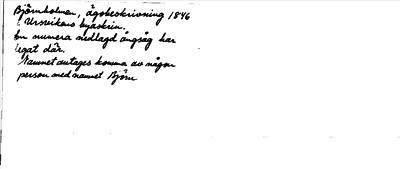 Björnholmen, ägobeskrivning 1846
i Ursvikens byaskrin.
En numera nedlagd ångsåg har
legat där.
Namnet antages komma av någon
person med namnet Björn